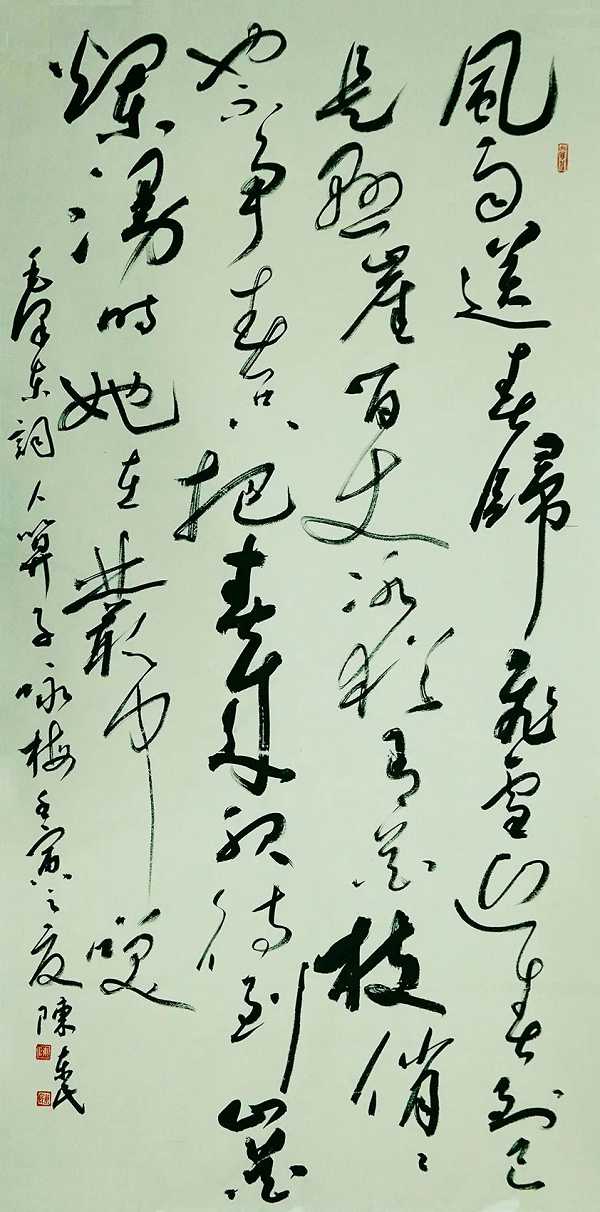 風雨送春歸飛雪迎春到已
是懸崖百丈冰猶有花枝俏〻
也不争春只把春來報待到山花
爛漫時她在叢中笑
毛澤东詞卜算子咏梅壬寅之夏陳